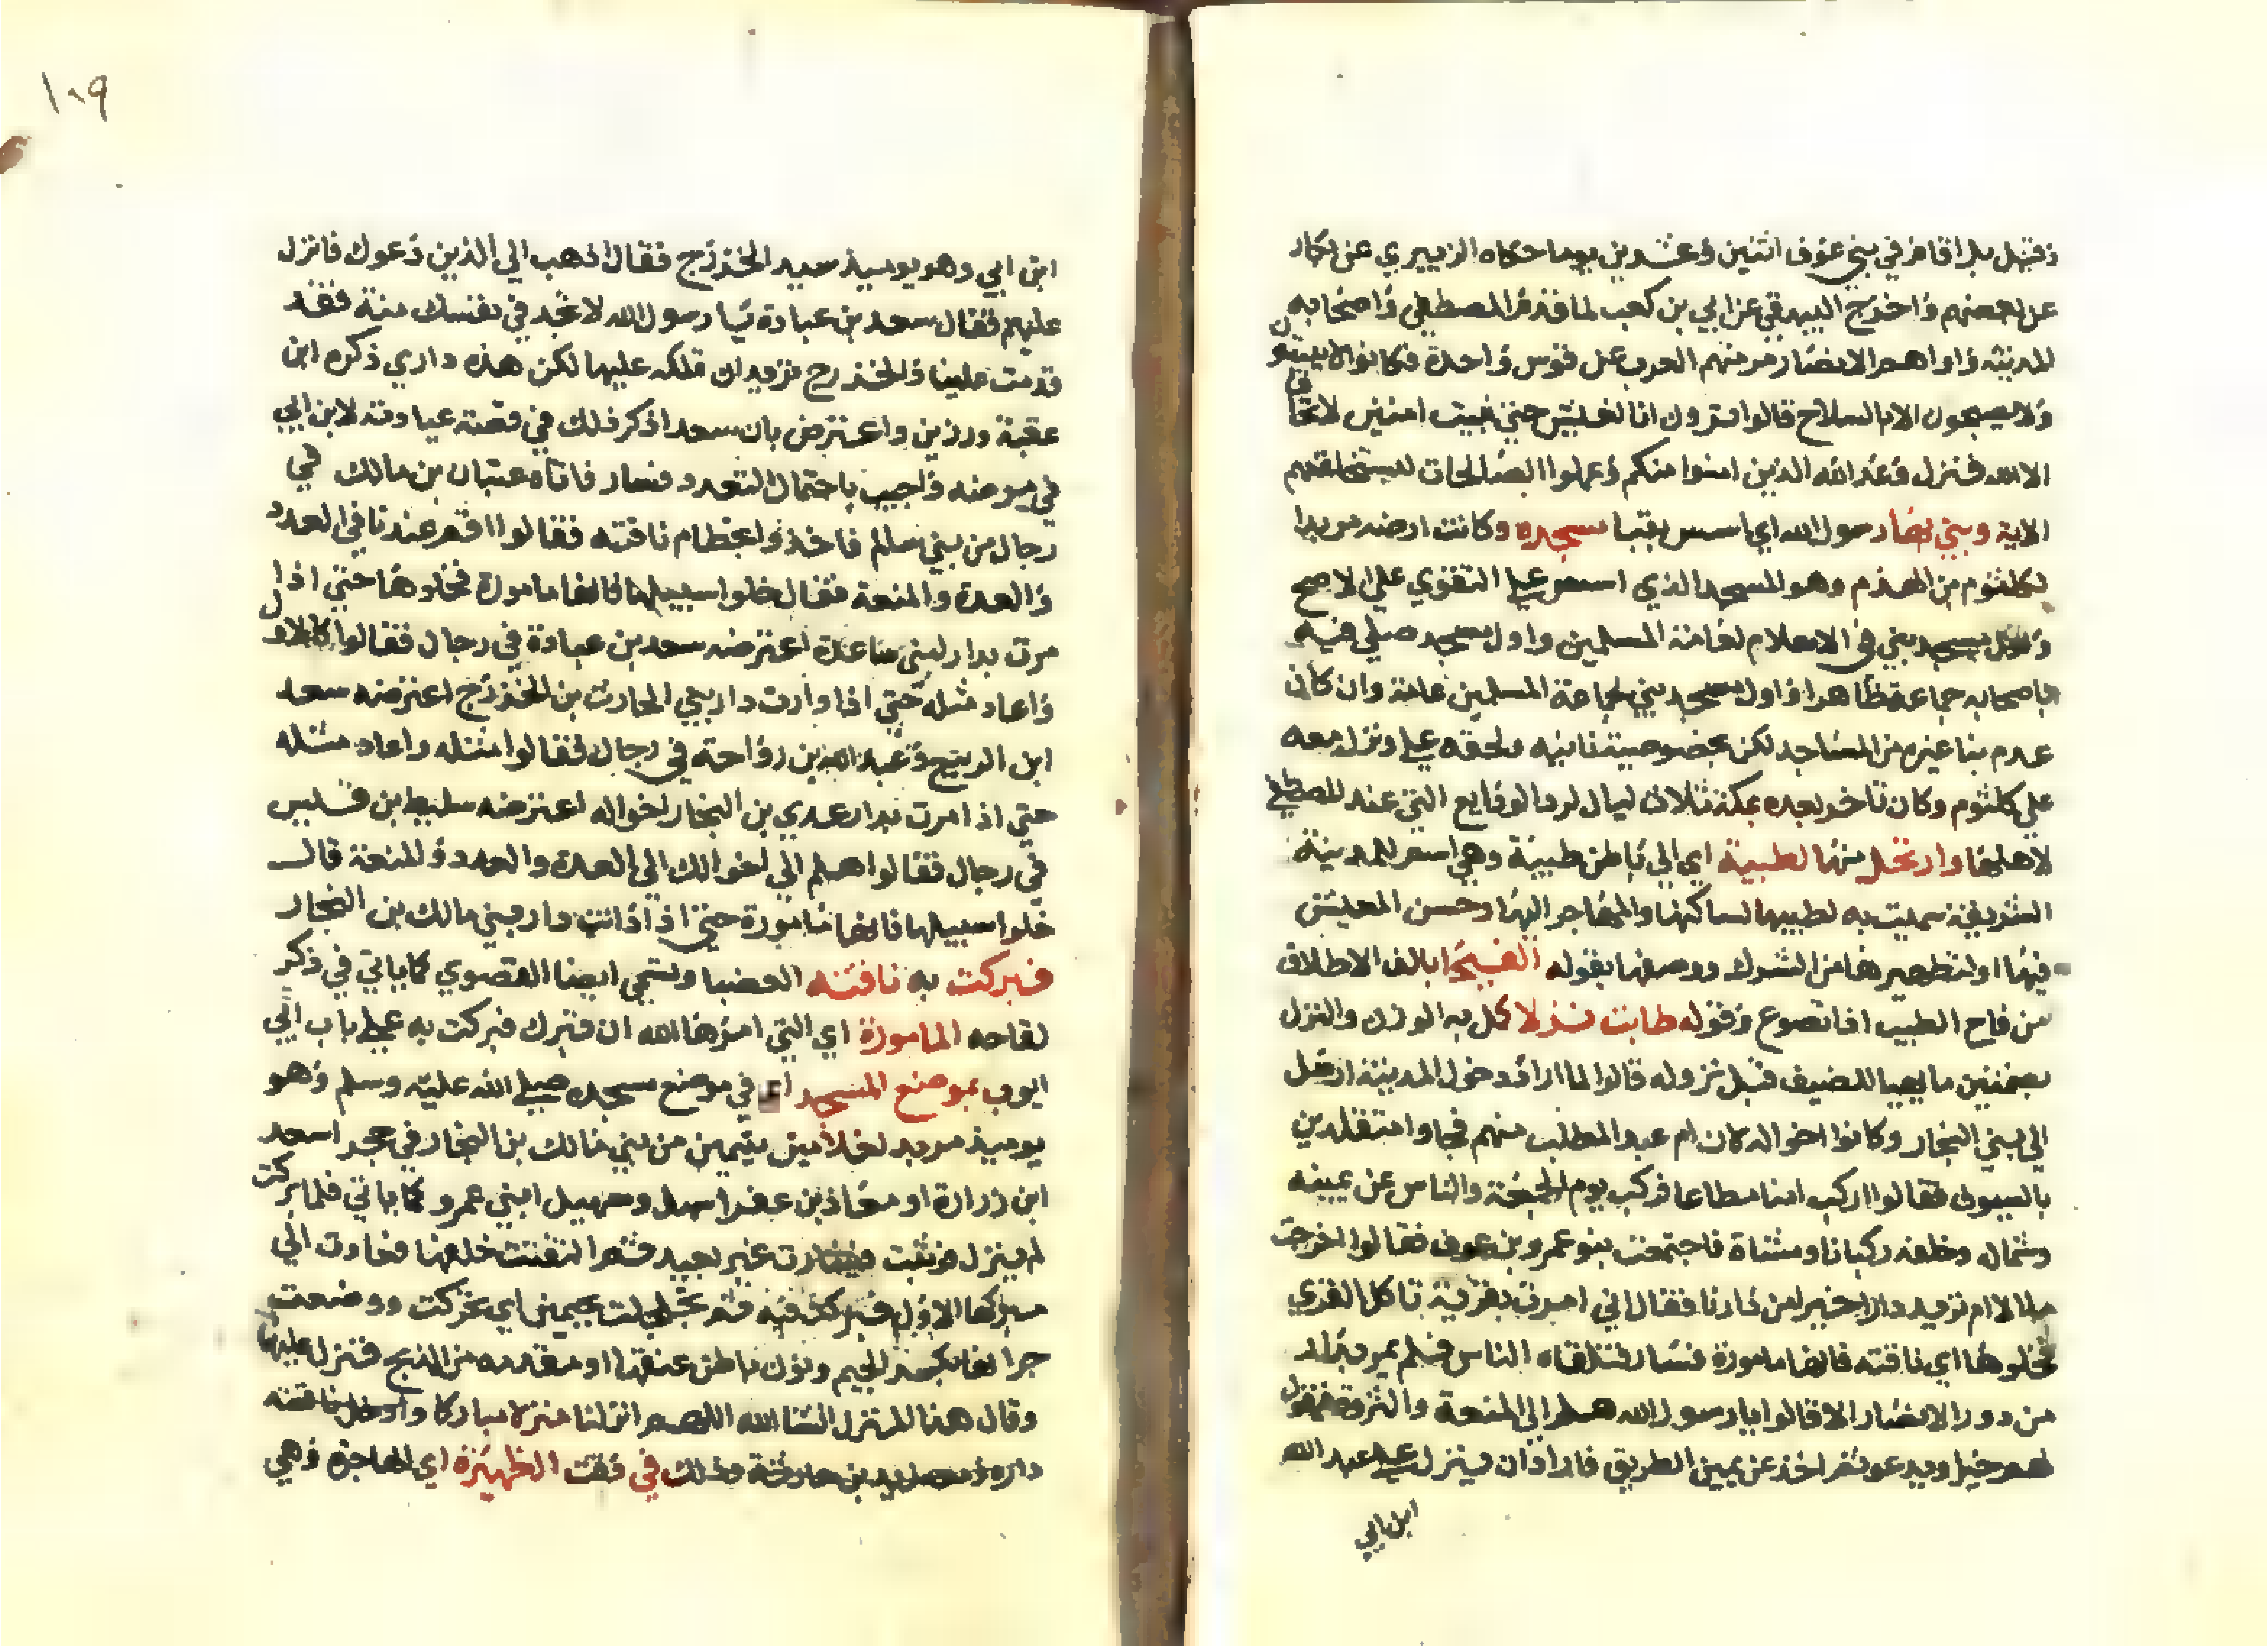 وقيل بل اقام في بني عوف اثنين وعشرين يوما حكاه الزبيري عن بكار
عن بعضهم واخرج البيهقي عن ابي بن كعب لما قدم المصطفى واصحابه
المدينة واواهم الانصار رمتهم العرب عن قوس واحدة فكانوا لا يبيتون
ولا يصبحون الا بالسلاح قالوا اترون انا نعيش حتى نبيت امنين لا نخاف
الا الله فنزل وعد الله الذين امنوا منكم وعملوا الصالحات ليستخلفنهم
الاية وبني بها رسول الله اي اسس بقبا مسجده وكانت ارضه مربدا
لكلثوم بن الهدم وهو المسجد الذي اسس على التقوى على الاصح
واول مسجد بني في الاسلام لعامة المسلمين واول مسجد صلى فيه
باصحابه جماعة ظاهرا واول مسجد بني لجماعة المسلمين عامة وان كان
عدم بنا غيره من المساجد لكن بخصوصية ثانيه ولحقه علي ونزل معه
علي كلثوم وكان تاخر بعده بمكة ثلاث ليال لرد الودايع التي عند المصطفى
لاهلها وارتحل منها لطيبة اي الى باطن طيبة وهي اسم للمدينة
الشريفة سميت به لطيبها لساكنها والمهاجر اليها وحسن المعيش
فيها او لتطهيرها من الشرك ووصفها بقوله الفيحا بالف الاطلاق
من فاح الطيب اذا تضوع وقوله طابت نزلا كمل به الوزن والنزل
بضمتين ما يهيا للضيف قبل نزوله قالوا لما اراد دخول المدينة ارسل
الى بني النجار وكانوا اخواله كان ام عبد المطلب منهم فجاوا متقلدين
بالسيوف فقالوا اركب امنا مطاعا فركب يوم الجمعة والناس عن يمينه
وشماله وخلفه ركبانا ومشاة فاجتمعت بنو عمرو بن عوف فقالوا اخرجت
ملالا ام تريد دارا خيرا من دارنا فقال اني امرت بقرية تاكل القرى
فخلوها اي ناقته فانها مامورة فسار لتلقاه الناس فلم يمر بدار
من دور الانصار الا قالوا يا رسول الله هلم الى المنعة والثروة فيقول
لهم خيرا ويدعو ثم اخذ عن يمين الطريق فاراد ان ينزل على عبد الله
ابن ابي
١٠٩
ابن ابي وهو يوميذ سيد الخزرج فقال اذهب الى الذين دعوك فانزل
عليهم فقال سعد بن عبادة يا رسول الله لا تجد في نفسك منه فقد
قدمت علينا والخزرج تريد ان تملكه عليها لكن هذه داري ذكره ابن
عقبة ورزين واعترض بان سعدا ذكر ذلك في قصة عيادته لابن ابي
في مرضه واجيب باحتمال التعدد فسار فاتاه عتبان بن مالك في
رجال من بني سلم فاخذوا بخطام ناقته فقالوا اقم عندنا في العدد
والعدة والمنعة فقال خلوا سبيلها فانها مامورة فخلوها حتى اذا
مرت بدار لبني ساعدة اعترضه سعد بن عبادة في رجال فقالوا كالاول
واعاد مثله حتى اذا وازت دار بني الحارث بن الخزرج اعترضه سعد
ابن الربيع وعبد الله بن رواحة في رجال فقالوا مثله واعاد مثله
حتى اذا مرت بدار عدي بن النجار اخواله اعترضه سليط بن قيس
في رجال فقالوا هلم الى اخوالك الى العدة والعدد والمنعة قال
خلوا سبيلها فانها مامورة حتى اذا اتت دار بني مالك بن النجار
فبركت به ناقته العضبا وتسمى ايضا القصوى كما ياتي في ذكر
لقاحه المامورة اي التي امرها الله ان تبرك فبركت به على باب ابي
ايوب بموضع المسجد اي في موضع مسجده صلى الله عليه وسلم وهو
يوميذ مربد لغلامين يتيمين من بني مالك بن النجار في حجر اسعد
ابن زرارة او معاذ بن عفرا سهل وسهيل ابني عمرو كما ياتي فلما بركت
لم ينزل فوثبت فسارت غير بعيد ثم التفتت خلفها فعادت الى
مبركها الاول فبركت فيه ثم تجلجلت بجيمين اي تحركت ووضعت
جرانها بكسر الجيم ونون باطن عنقها او مقدمه من المذبح فنزل عليها
وقال هذا المنزل ان شا الله اللهم انزلنا منزلا مباركا وادخل ناقته
داره زيد بن حارثة وذلك في وقت الظهيرة اي الهاجرة وهي